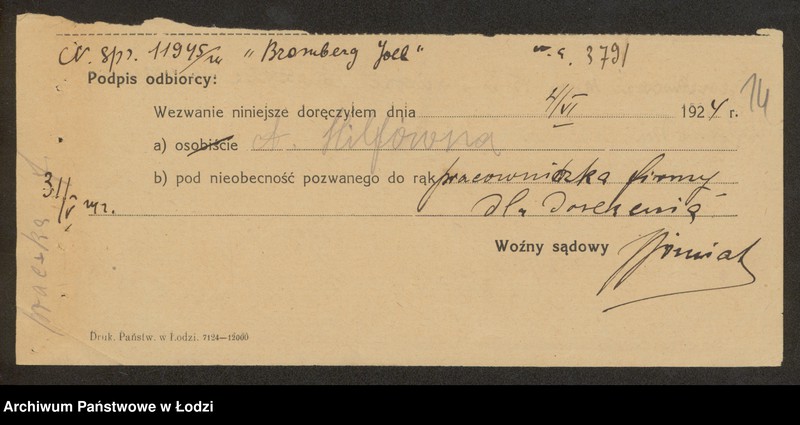 N. spr. 11945/24 "Bromberg Joel" 3791
14
Podpis odbiorcy:
Wezwanie niniejsze doręczyłem dnia 4/VI 1924 r.
a) osobiście A. Hilfówna
b) pod nieobecność pozwanego do rąk pracowniczka firmy
31/V
dla doręczenia
Woźny sądowy
Druk. Państw. w Łodzi. 7124—12000
Archiwum Państwowe w Łodzi